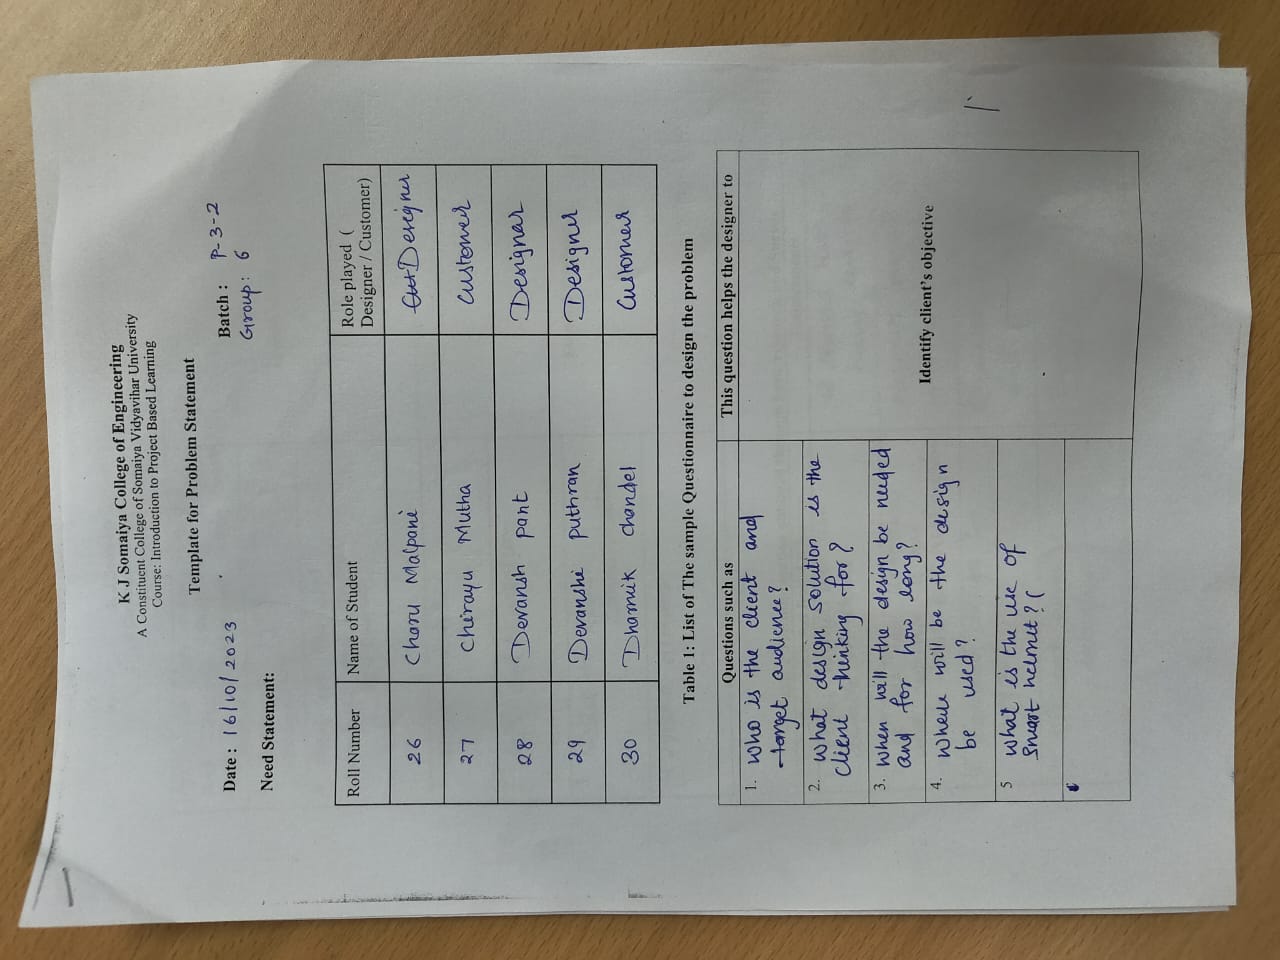 K J Somaiya College of Engineering
A Constituent College of Somaiya Vidyavihar University
Course: Introduction to Project Based Learning
Template for Problem Statement
Date : 16/10/2023 Batch : P-3-2
Group : 6
Need Statement:
Roll Number Name of Student Role played ( Designer / Customer)
26 Charu Malpani Designer
27 Chirayu Mutha Customer
28 Devansh pant Designer
29 Devanshi puthran Designer
30 Dharmik chandel Customer
Table 1: List of The sample Questionnaire to design the problem
Questions such as This question helps the designer to
1. Who is the client and
target audience?
2. What design solution is the
client thinking for?
3. When will the design be needed
and for how long?
4. Where will be the design
be used?
5 What is the use of
Smart helmet? (
Identify client's objective